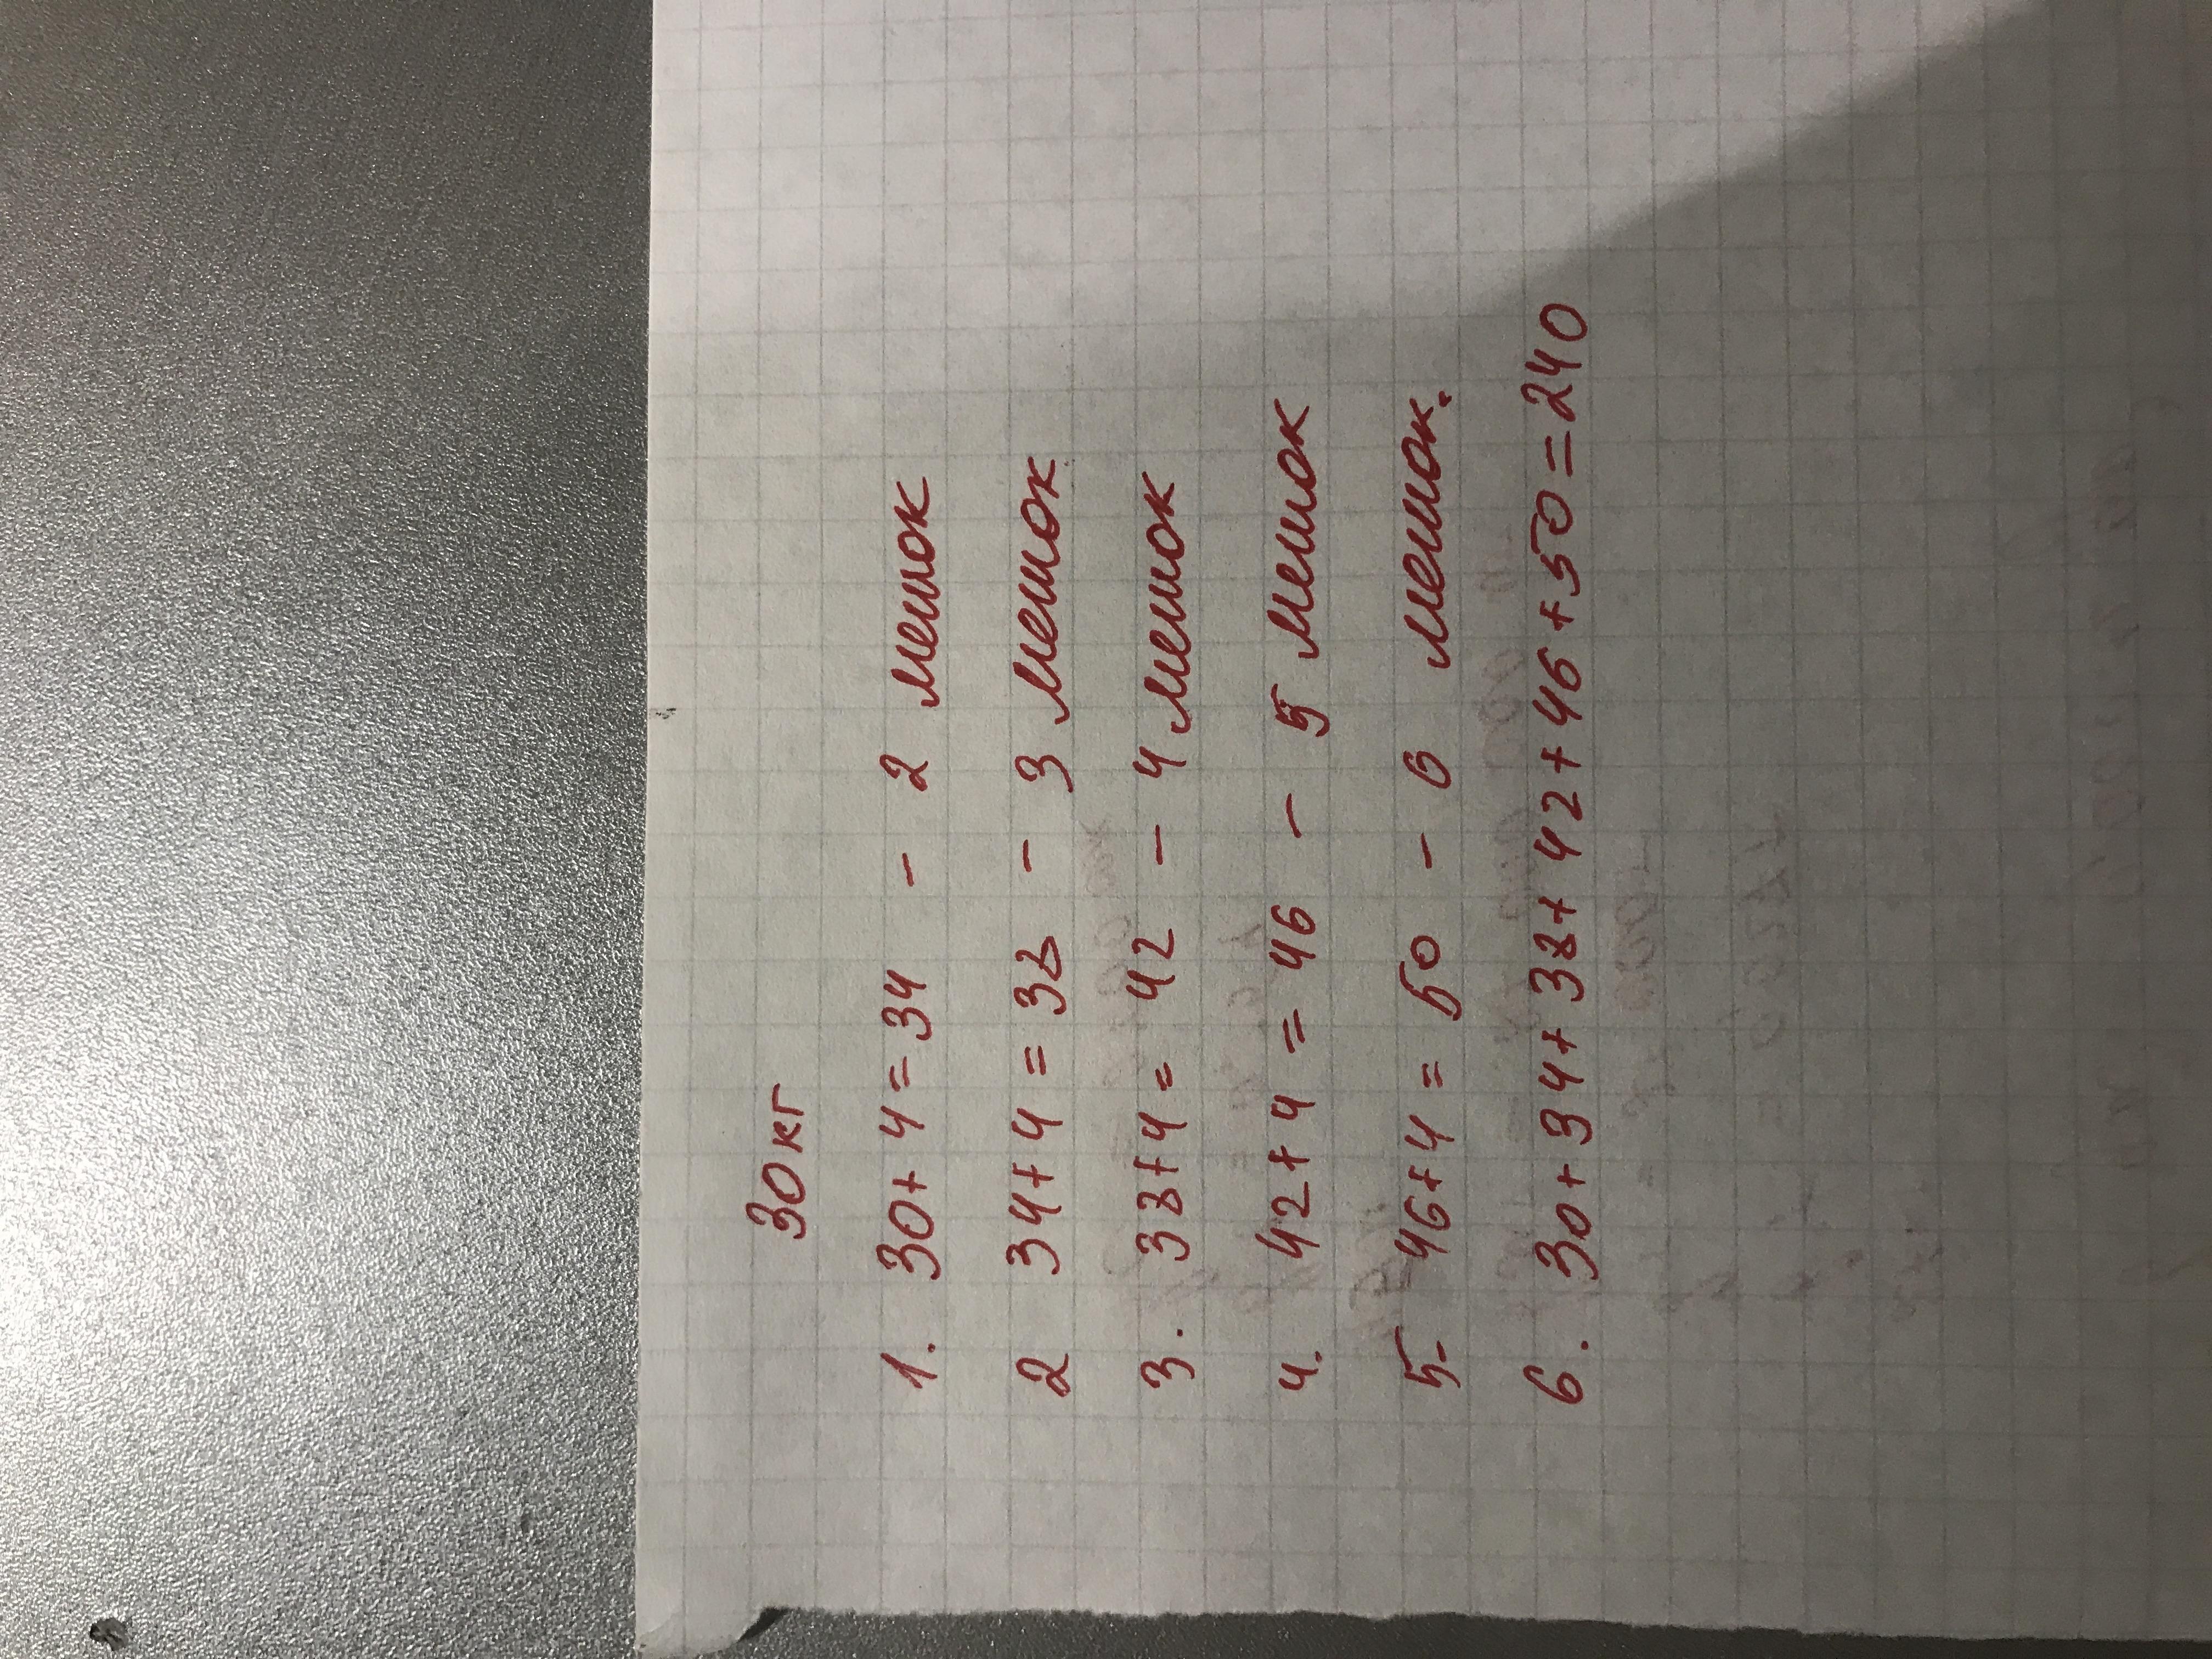 30 кг
1. 30+4=34 - 2 мешок
2 34+4=38 - 3 мешок
3. 38+4=42 - 4 мешок
4. 42+4=46 - 5 мешок
5- 46+4=50 - 6 мешок.
6. 30+34+38+42+46+50=240